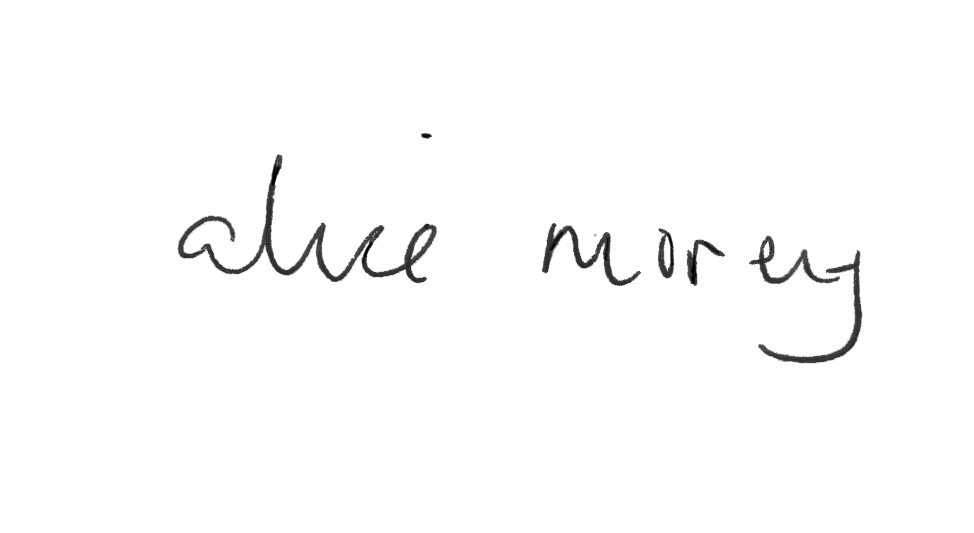 alice morey